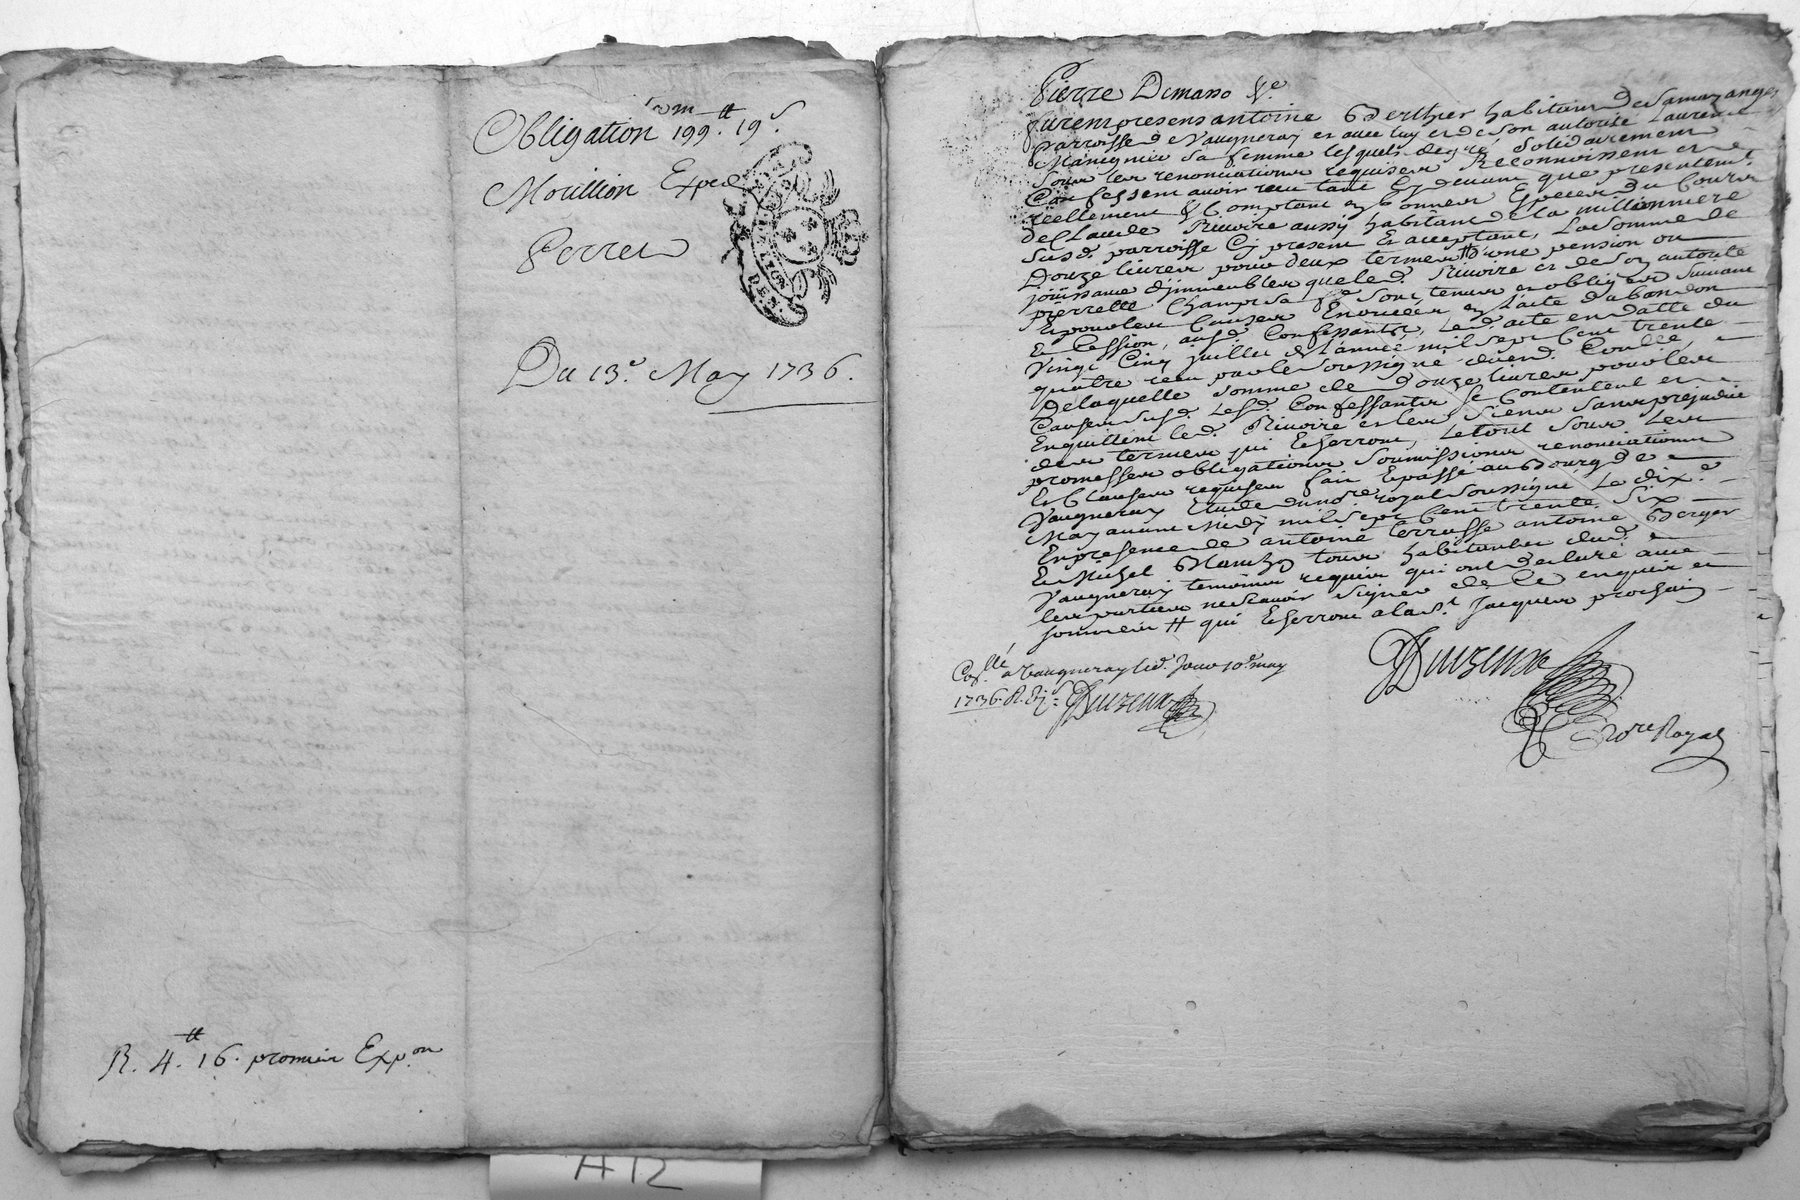 Obligation 199.tt 19.s
Mouillion Exped
Perret
Du 13.e May 1736.
R. 4.tt 16. premier Exp.on
A12
Pierre Dimano
furent presens antoine Berthet habitant de
parroisse de Vaugneray et avec luy et de son autorité Laurence
sa femme lesquels de gré solidairement
sous les renonciations requises Reconnoissent et
Confessent avoir receu tant cy devant que presentem.t
reellement & Comptant en bonnes Especes du Cours
de Claude Rivoire aussy habitant de la millionniere
susd. parroisse Cy present Et acceptant, La somme de
Douze livres pour deux termes d'une pension ou
jouissance d'immeubles que led. Rivoire et de son autorité
pierrette Champ sa f.e sont tenus et obliges suivant
Et pour les Causes Enoncées en l'acte d'abandon
Et Cession, ausd. Confessants, Led. acte en datte du
vingt Cinq juillet de l'année mil sept Cent trente
quatre receu par le soussigné duem.t Conllé,
De laquelle somme de douze livres pour les
Causes susd. Lesd. Confessants se Contentent et
En quittent led. Rivoire et les siens sans prejudice
des termes qui Echerront, Le tout sous Les
promesses obligations soumissions renonciations
Et Clauses requises fait Et passé au Bourg de
Vaugneray Etude du no.re royal soussigné Le dix.e
May avant Midy mil sept Cent trente six
En presence de antoine terrasse antoine Berger
Et Michel tous habitants dud.
Vaugneray temoins requis qui ont declaré avec
les parties ne scavoir signer de Ce enquis et
sommés tt qui Echerront a la s.t Jacques prochain
Duizeux
No.re Royal
Co.llé a Vaugneray led. Jour 10.e may
1736. R. Duizeux